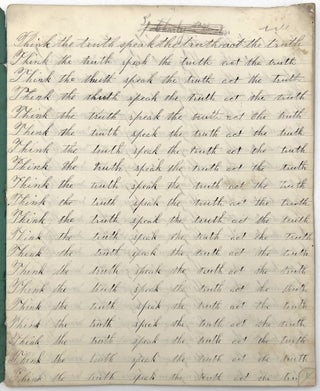 Think the truth speak the truth act the truth
Think the truth speak the truth act the truth
Think the truth speak the truth act the truth
Think the truth speak the truth act the truth
Think the truth speak the truth act the truth
Think the truth speak the truth act the truth
Think the truth speak the truth act the truth
Think the truth speak the truth act the truth
Think the truth speak the truth act the truth
Think the truth speak the truth act the truth
Think the truth speak the truth act the truth
Think the truth speak the truth act the truth
Think the truth speak the truth act the truth
Think the truth speak the truth act the truth
Think the truth speak the truth act the truth
Think the truth speak the truth act the truth
Think the truth speak the truth act the truth
Think the truth speak the truth act the truth
Think the truth speak the truth act the truth